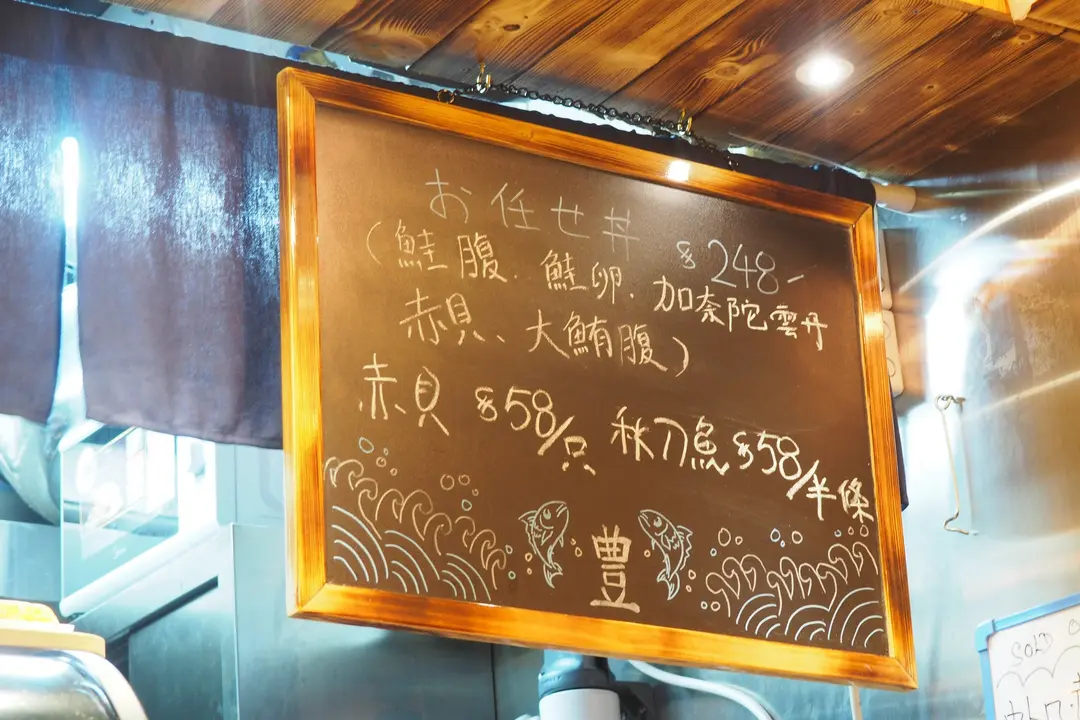 お任せ丼 $248-
(鮭腹、鮭卵、加奈陀雲丹
赤貝、大鮪腹)
赤貝 $58/只 秋刀魚$58/半條
豊
SOLD